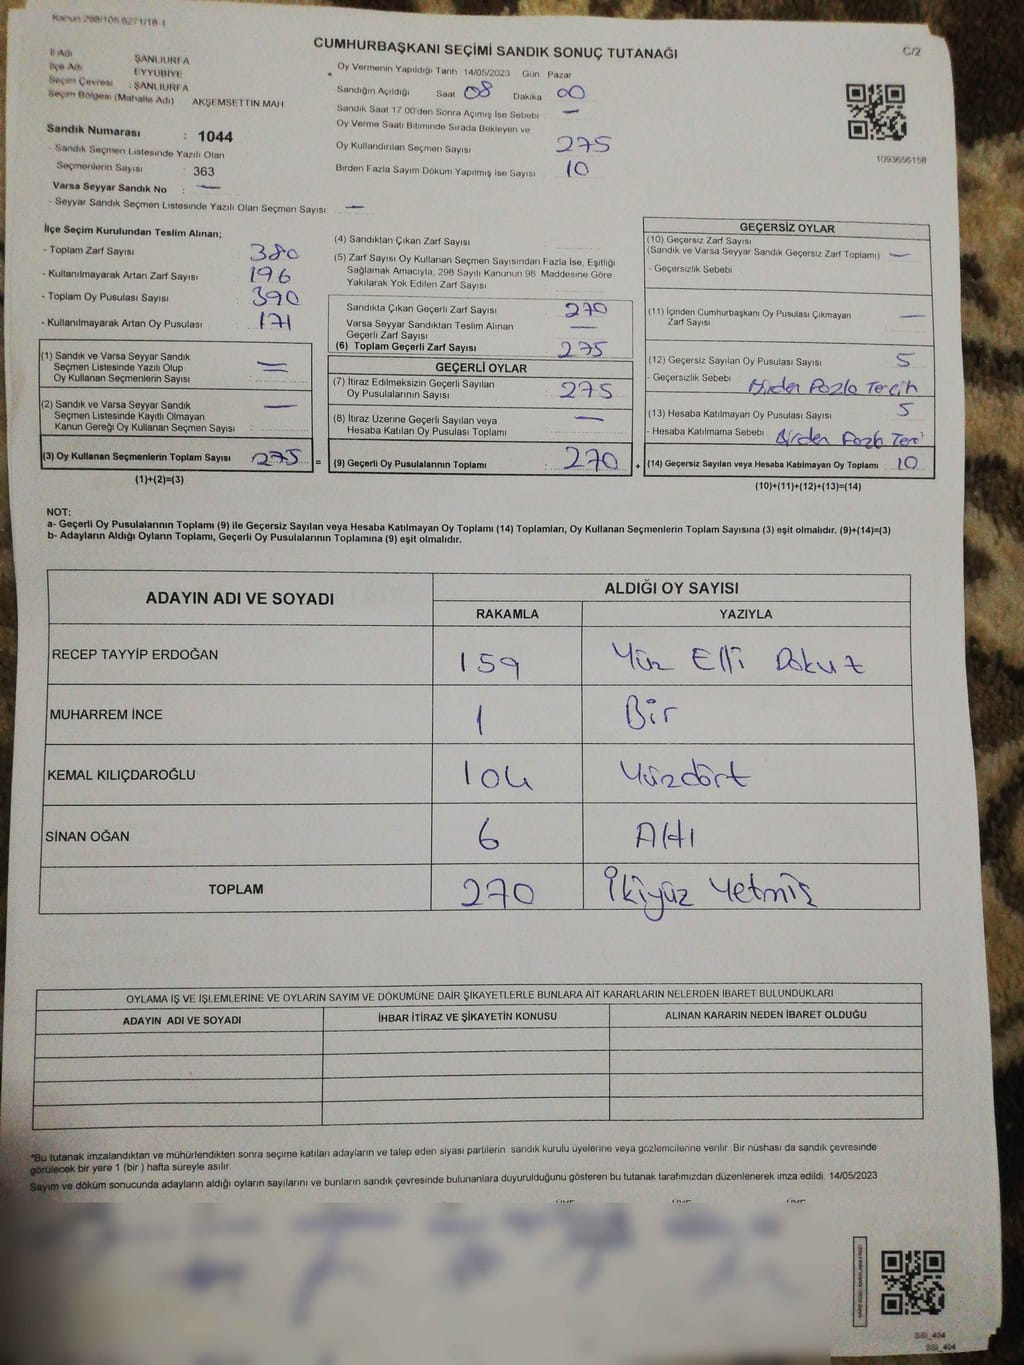 Kanun 298/105,6271/18-1
CUMHURBAŞKANI SEÇİMİ SANDIK SONUÇ TUTANAĞI
C/2
İl Adı : ŞANLIURFA
İlçe Adı : EYYÜBİYE
Seçim Çevresi : ŞANLIURFA
Seçim Bölgesi (Mahalle Adı) AKŞEMSETTİN MAH
Sandık Numarası : 1044
- Sandık Seçmen Listesinde Yazılı Olan
Seçmenlerin Sayısı : 363
Varsa Seyyar Sandık No : —
- Seyyar Sandık Seçmen Listesinde Yazılı Olan Seçmen Sayısı : —
Oy Vermenin Yapıldığı Tarih 14/05/2023 Gün Pazar
Sandığın Açıldığı Saat 08 Dakika 00
Sandık Saat 17.00'den Sonra Açımış İse Sebebi —
Oy Verme Saati Bitiminde Sırada Bekleyen ve
Oy Kullandırılan Seçmen Sayısı 275
Birden Fazla Sayım Döküm Yapılmış İse Sayısı 10
1093656158
İlçe Seçim Kurulundan Teslim Alınan;
- Toplam Zarf Sayısı : 380
- Kullanılmayarak Artan Zarf Sayısı : 196
- Toplam Oy Pusulası Sayısı : 390
- Kullanılmayarak Artan Oy Pusulası : 171
(1) Sandık ve Varsa Seyyar Sandık
Seçmen Listesinde Yazılı Olup
Oy Kullanan Seçmenlerin Sayısı : —
(2) Sandık ve Varsa Seyyar Sandık
Seçmen Listesinde Kayıtlı Olmayan
Kanun Gereği Oy Kullanan Seçmen Sayısı : —
(3) Oy Kullanan Seçmenlerin Toplam Sayısı : 275 =
(1)+(2)=(3)
(4) Sandıktan Çıkan Zarf Sayısı
(5) Zarf Sayısı Oy Kullanan Seçmen Sayısından Fazla İse, Eşitliği
Sağlamak Amacıyla; 298 Sayılı Kanunun 98. Maddesine Göre
Yakılarak Yok Edilen Zarf Sayısı
Sandıkta Çıkan Geçerli Zarf Sayısı : 270
Varsa Seyyar Sandıktan Teslim Alınan
Geçerli Zarf Sayısı : —
(6) Toplam Geçerli Zarf Sayısı : 275
GEÇERLİ OYLAR
(7) İtiraz Edilmeksizin Geçerli Sayılan
Oy Pusulalarının Sayısı : 275
(8) İtiraz Üzerine Geçerli Sayılan veya
Hesaba Katılan Oy Pusulası Toplamı : —
(9) Geçerli Oy Pusulalarının Toplamı : 270 +
GEÇERSİZ OYLAR
(10) Geçersiz Zarf Sayısı
(Sandık ve Varsa Seyyar Sandık Geçersiz Zarf Toplamı) —
- Geçersizlik Sebebi
(11) İçinden Cumhurbaşkanı Oy Pusulası Çıkmayan
Zarf Sayısı —
(12) Geçersiz Sayılan Oy Pusulası Sayısı 5
- Geçersizlik Sebebi Birden Fazla Tercih
(13) Hesaba Katılmayan Oy Pusulası Sayısı 5
- Hesaba Katılmama Sebebi Birden Fazla Terc
(14) Geçersiz Sayılan veya Hesaba Katılmayan Oy Toplamı 10
(10)+(11)+(12)+(13)=(14)
NOT:
a- Geçerli Oy Pusulalarının Toplamı (9) ile Geçersiz Sayılan veya Hesaba Katılmayan Oy Toplamı (14) Toplamları, Oy Kullanan Seçmenlerin Toplam Sayısına (3) eşit olmalıdır. (9)+(14)=(3)
b- Adayların Aldığı Oyların Toplamı, Geçerli Oy Pusulalarının Toplamına (9) eşit olmalıdır.
ADAYIN ADI VE SOYADI
ALDIĞI OY SAYISI
RAKAMLA YAZIYLA
RECEP TAYYİP ERDOĞAN 159 Yüz Elli Dokuz
MUHARREM İNCE 1 Bir
KEMAL KILIÇDAROĞLU 104 Yüzdört
SİNAN OĞAN 6 Altı
TOPLAM 270 İkiyüz Yetmiş
OYLAMA İŞ VE İŞLEMLERİNE VE OYLARIN SAYIM VE DÖKÜMÜNE DAİR ŞİKAYETLERLE BUNLARA AİT KARARLARIN NELERDEN İBARET BULUNDUKLARI
ADAYIN ADI VE SOYADI İHBAR İTİRAZ VE ŞİKAYETİN KONUSU ALINAN KARARIN NEDEN İBARET OLDUĞU
*Bu tutanak imzalandıktan ve mühürlendikten sonra seçime katılan adayların ve talep eden siyasi partilerin sandık kurulu üyelerine veya gözlemcilerine verilir. Bir nüshası da sandık çevresinde
görülecek bir yere 1 (bir) hafta süreyle asılır.
Sayım ve döküm sonucunda adayların aldığı oyların sayılarını ve bunların sandık çevresinde bulunanlara duyurulduğunu gösteren bu tutanak tarafımızdan düzenlenerek imza edildi. 14/05/2023
SSİ_404
SSİ_404